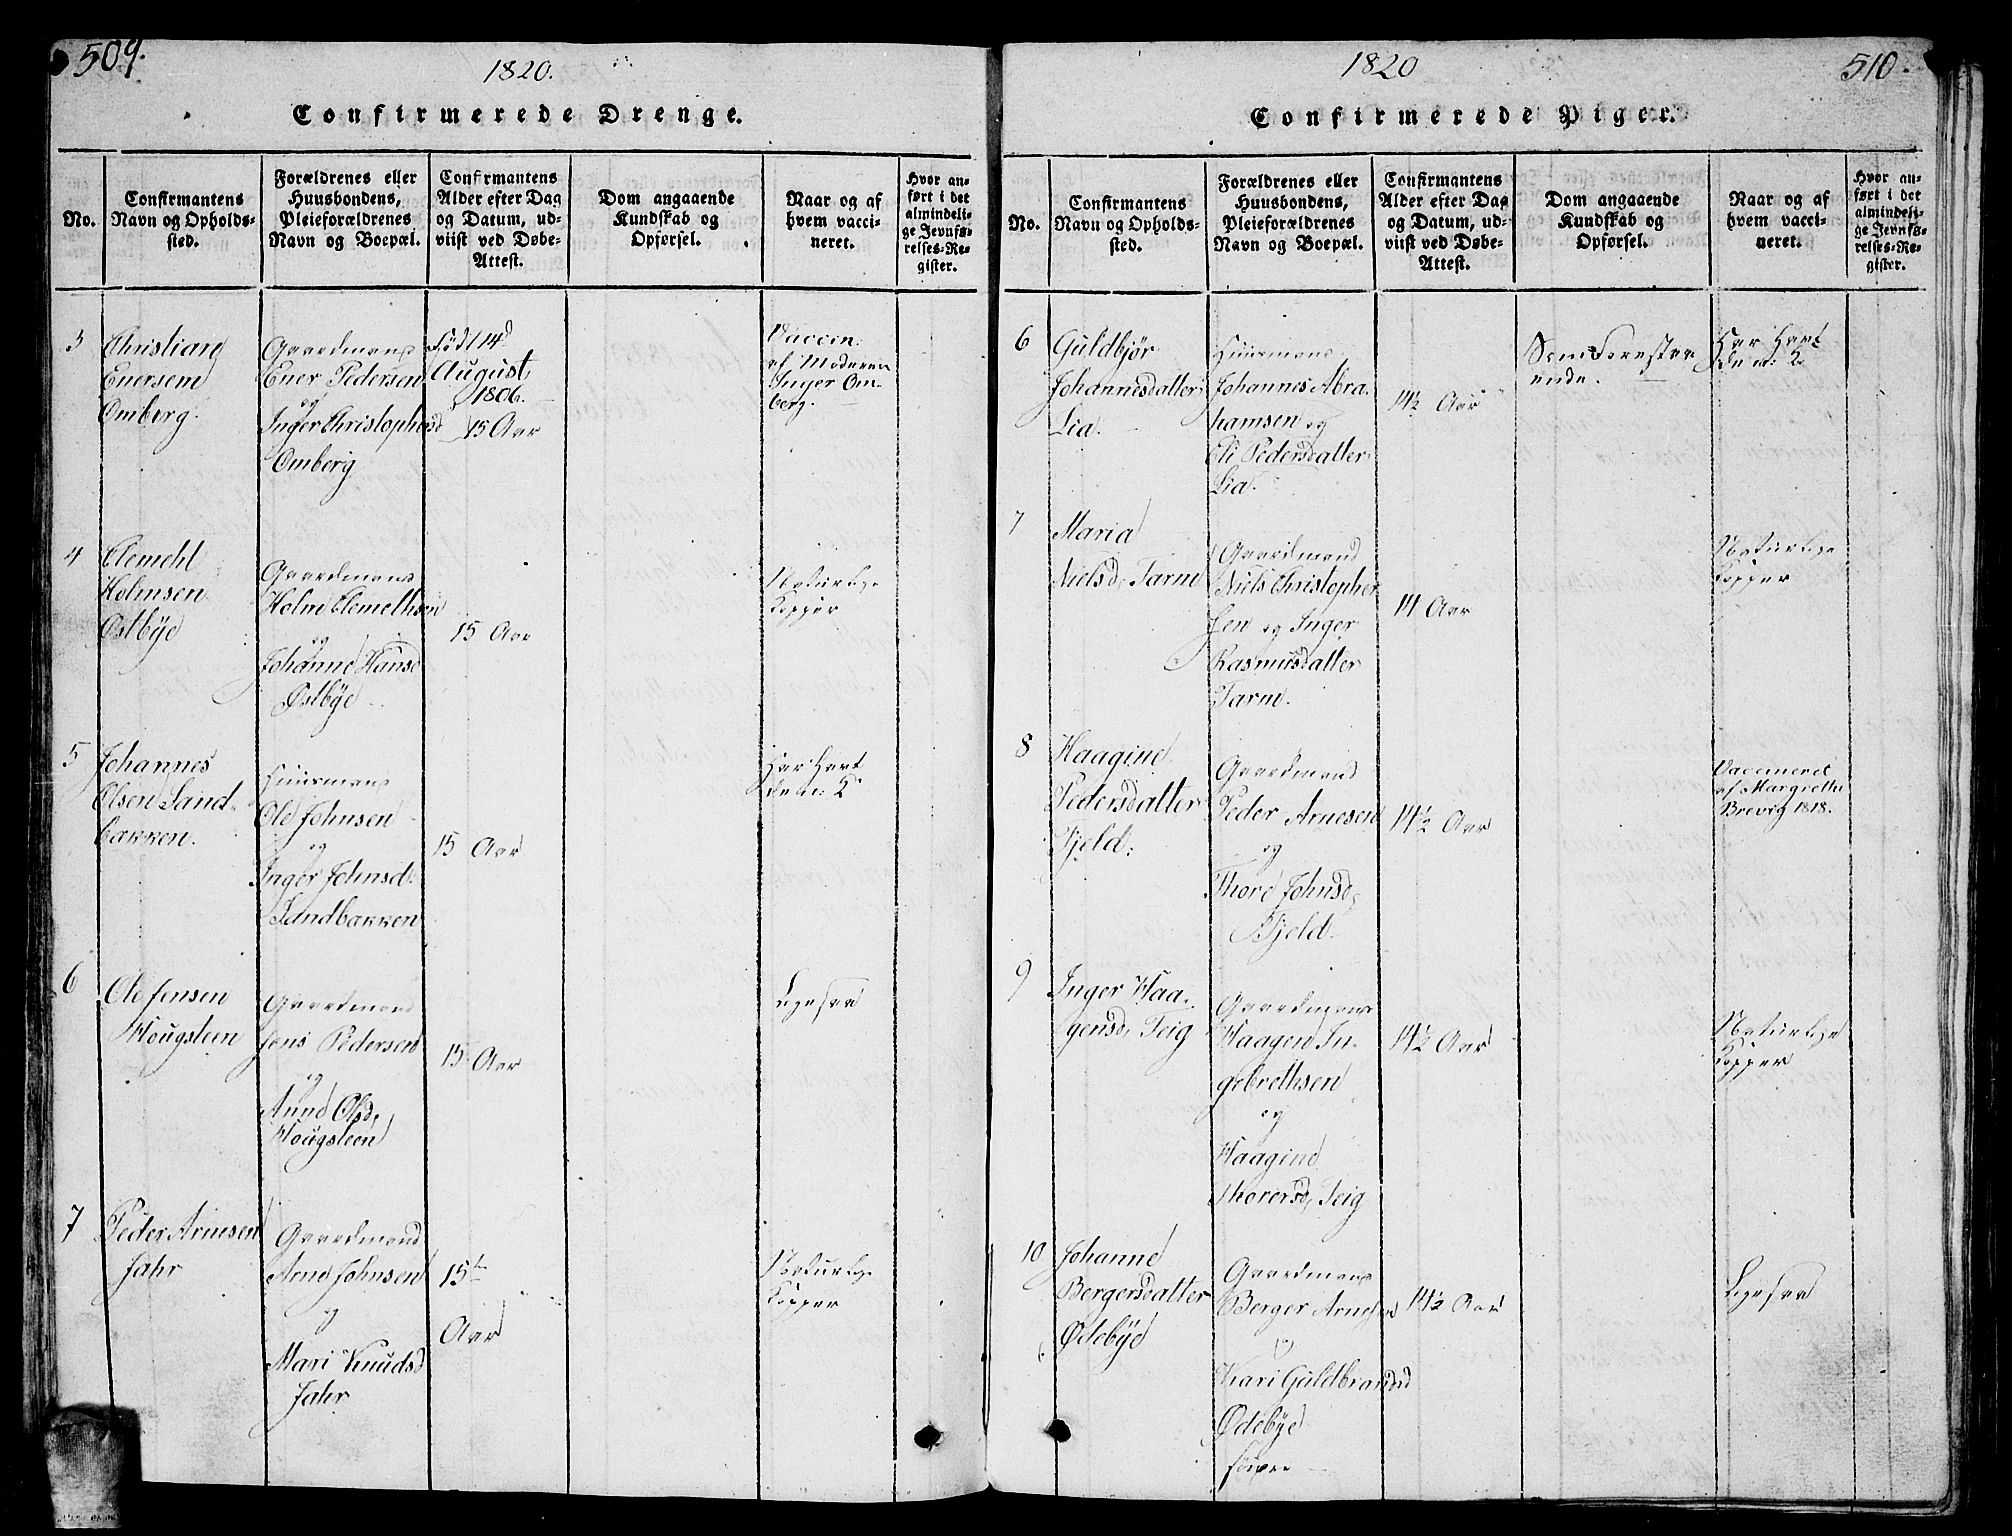 509.
1820.
Confirmerede Drenge.
No.
Confirmantens
Navn og Opholds-
sted.
Forældrenes eller
Huusbondens,
Pleieforældrenes
Navn og Boepæl.
Confirmantens
Alder efter Dag
og Datum, ud-
viist ved Døbe-
Attest.
Dom angaaende
Kundskab og
Opførsel.
Naar og af
hvem vacci-
neret.
Hvor an-
ført i det
almindeli-
ge Jevnfø-
relses-Re-
gister.
3
Christian
Enersem
Omberg.
Gaardmand
Ener Pedersen
og
Inger Christophersd
Omberg
Fød 14d
August
1806.
15 Aar
Vaccin:
af Moderen
Inger Om-
berg.
4
Clemeht
Holmsen
Østbÿe
Gaardmand
Holm Clemethsen
og
Johanne Hansd
Østbÿe
15 Aar
Naturlige
Kopper
5
Johannes
Olsen Sand-
bakken.
Huusmand
Ole Johnsen
og
Inger Johnsd.
Sandbakken
15 Aar
Har Havt
dem: 2
6
Ole Jensen
Hougsteen
Gaardmand
Jens Pedersen
og
Anne Olsd,
Hougsteen
15 Aar
Ligesaa
7
Peder Arnesen
Jahr
Gaardmand
Arne Johnsen
og
Mari Knudsd
Jahr
15
Aar
Naturlige
Kopper
1820
510.
Confirmerede Piger.
No.
Confirmantens
Navn og Opholds-
sted.
Forældrenes eller
Huusbondens,
Pleieforældrenes
Navn og Boepæl.
Confirmantens
Alder efter Dag
og Datum, ud-
viist ved Døbe-
Attest.
Dom angaaende
Kundskab og
Opførsel.
Naar og af
hvem vacci-
neret.
Hvor an-
ført i det
almindeli-
ge Jevnfø-
relses-Re-
gister.
6
Guldbjør
Johannesdatter
Lia.
Huusmand
Johannes Abra-
hamsen og
Eli Pedersdatter
Lia.
14½ Aar
Som Forestaa-
ende.
Har Havt
dem: 2
7
Maria
Nielsd, Tarm
Gaardmand
Niels Christopher
sen og Inger
Rasmusdatter
Tarm.
14 Aar
Naturlige
Kopper
8
Haagine
Pedersdatter
Fjeld.
Gaardmand
Peder Arnesen
og
Thore Johnsd,
Fjeld.
14½ Aar
Vaccineret
af Margrethe
Brevig 1818.
9
Inger Haa-
gensd, Teig
Gaardmand
Haagen In-
gebrethsen
og
Haagine
Thorersd, Teig
14½ Aar
Naturlige
Kopper
10
Johanne
Bergersdatter
Ødebÿe
Gaardmand
Berger Arnesen
og
Kari Guldbrandsd
Ødebÿe
14½ Aar
Ligesaa